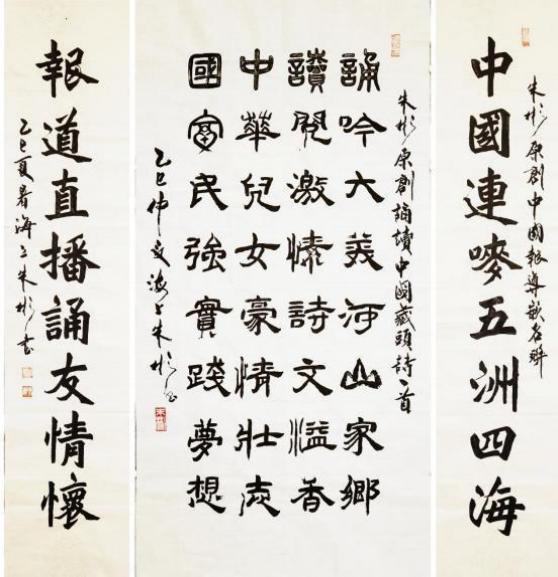 朱彬原創中國報導嵌名聯
中國連嘜五洲四海
朱彬原創誦讀中國藏頭詩一首
誦吟大美河山家鄉
讀閱激愫詩文溢香
中華兒女豪情壯志
國富民強實踐夢想
乙巳仲夏海上朱彬書
報道直播誦友情懷
乙巳夏暑海上朱彬書